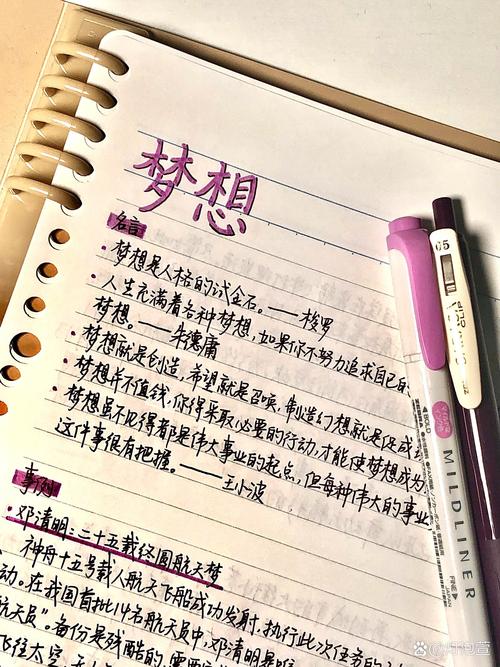 梦想
名言
·梦想是人格的试金石。——梭罗
·人生充满着各种梦想,如果你不努力追求自己的
梦想。——朱德庸
·梦想就是创造,希望就是召唤,制造幻想就是促成
·梦想并不值钱,你得采取必要的行动,才能使梦想成为
·梦想虽不见得都是伟大事业的起点,但每种伟大的事业
这件事很有把握。——王小波
事例
·邓清明:二十五载终圆航天梦
神舟十五号载人航天飞船成功发射,执行此次任务的
动。在我国首批14名航天员中,邓清明是唯
航天员”。备份是残酷的,需要
飞往太空
05
MILDLINER
BOLD
FINE
JAPAN
Bai
百度